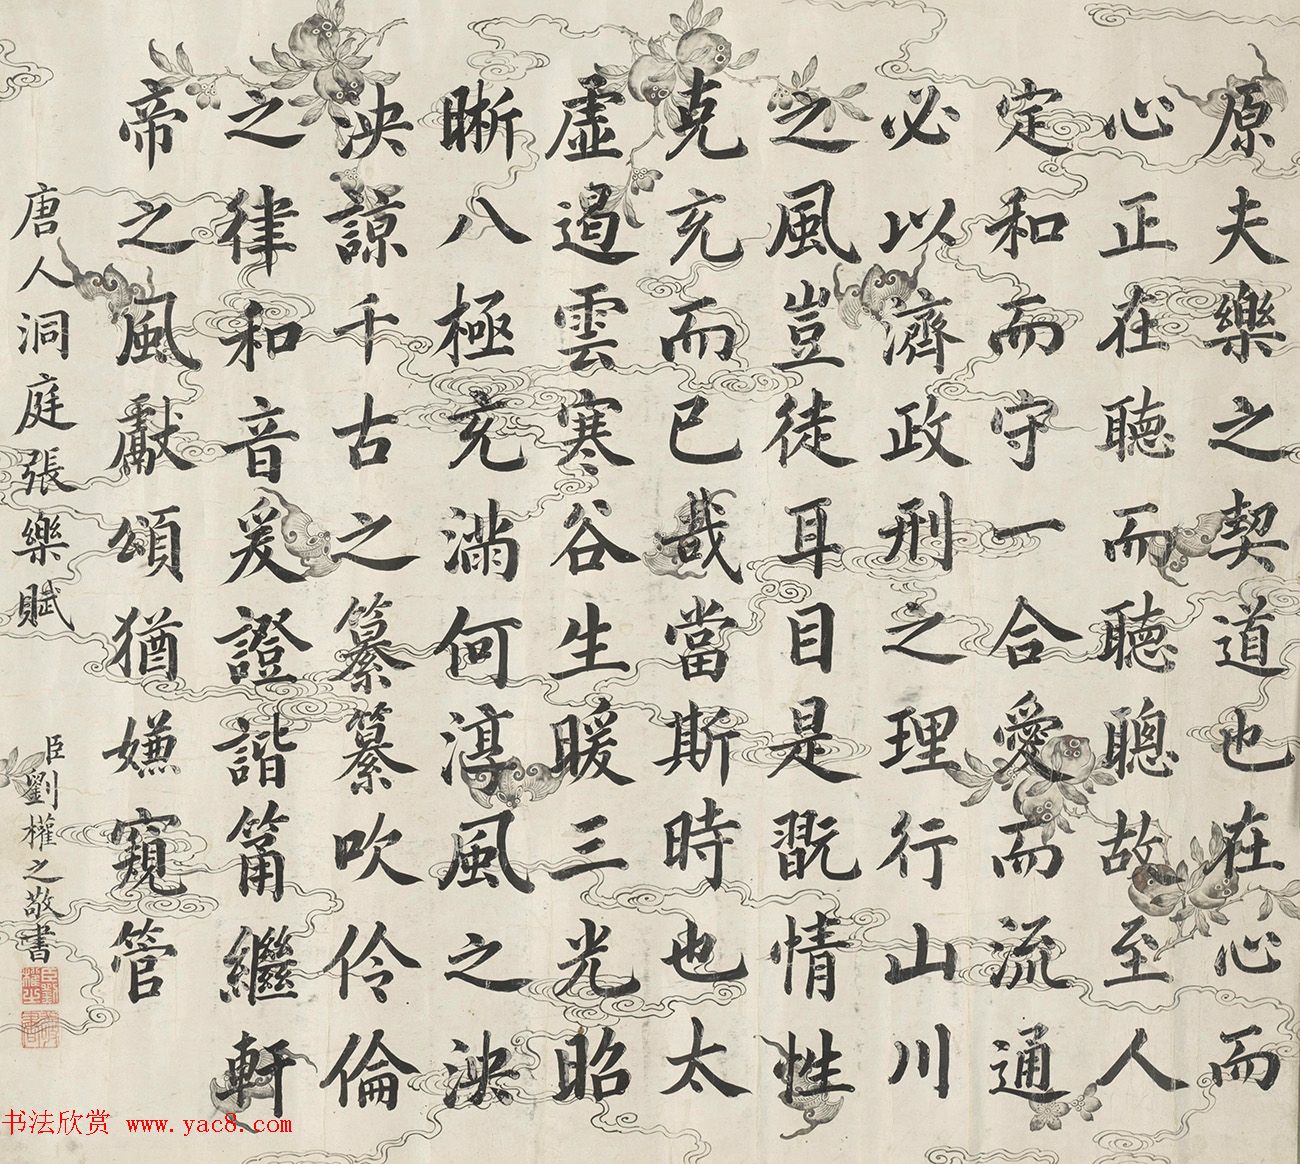 原夫樂之契道也在心而
心正在聽而聽聰故至人
定和而守一合愛而流通
必以濟政刑之理行山川
之風豈徒耳目是翫情性
克充而已哉當斯時也太
虛遏雲寒谷生暖三光昭
晰八極充滿何淳風之泱
泱諒千古之纂纂吹伶倫
之律和音爰證諧筩繼軒
帝之風獻頌猶嫌窺管
唐人洞庭張樂賦
臣劉權之敬書
臣劉權之
书法欣赏 www.yac8.com